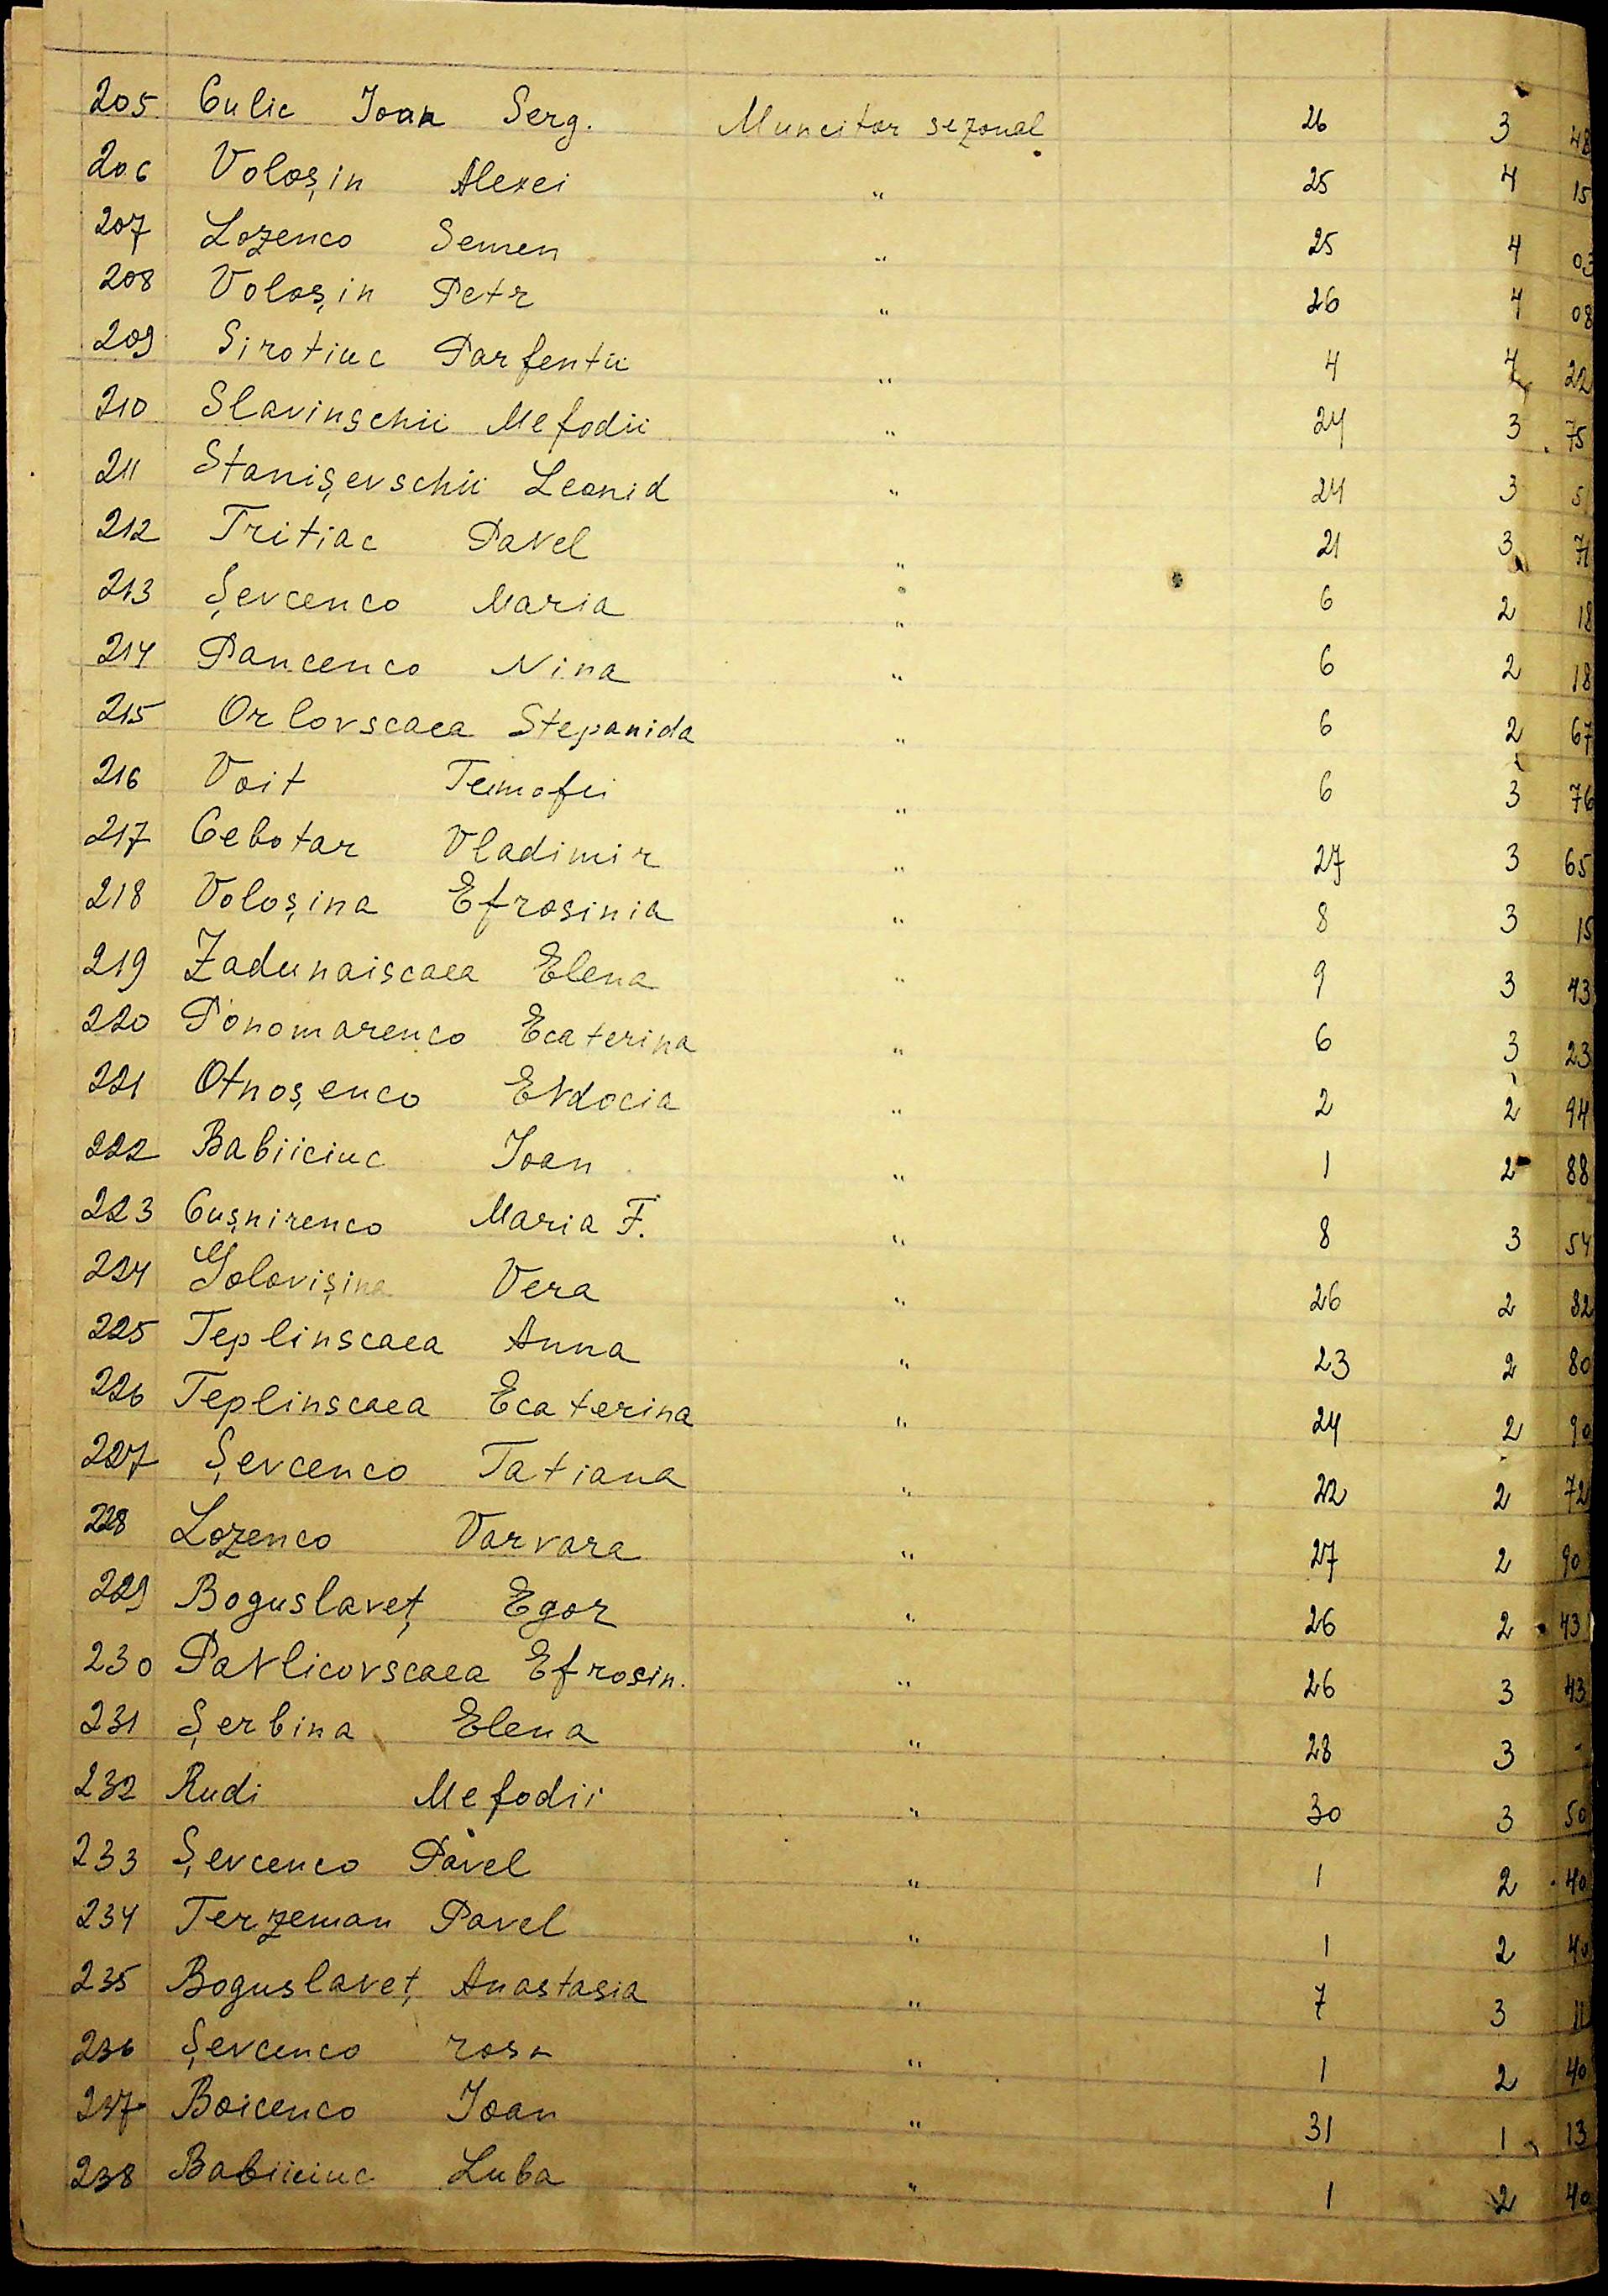 205 Culic Ioan Serg. Muncitor sezonal 26 3 48
206 Voloșin Alexei " 25 4 15
207 Lozenco Semen " 25 4 03
208 Voloșin Petr " 26 4 08
209 Sirotiuc Parfentii " 4 4 22
210 Slavinschii Mefodii " 24 3 75
211 Stanișevschii Leonid " 24 3 51
212 Tritiac Pavel " 21 3 71
213 Șevcenco Maria " 6 2 18
214 Pancenco Nina " 6 2 18
215 Orlovscaea Stepanida " 6 2 67
216 Voit Temofei " 6 3 76
217 Cebotar Vladimir " 27 3 65
218 Voloșina Efrosinia " 8 3 15
219 Zadunaiscaea Elena " 9 3 43
220 Ponomarenco Ecaterina " 6 3 23
221 Otnoșenco Evdocia " 2 2 94
222 Babiiciuc Ioan " 1 2 88
223 Cușnirenco Maria F. " 8 3 54
224 Golovișina Vera " 26 2 82
225 Teplinscaea Anna " 23 2 80
226 Teplinscaea Ecaterina " 24 2 90
227 Șevcenco Tatiana " 22 2 72
228 Lozenco Varvara " 27 2 90
229 Boguslaveț Egor " 26 2 43
230 Pavlicovscaea Efrosin. " 26 3 43
231 Șerbina Elena " 28 3 -
232 Rudi Mefodii " 30 3 50
233 Șevcenco Pavel " 1 2 40
234 Terzeman Pavel " 1 2 40
235 Boguslaveț Anastasia " 7 3 11
236 Șevcenco rosa " 1 2 40
237 Boicenco Ioan " 31 1 13
238 Babiiciuc Luba " 1 2 40